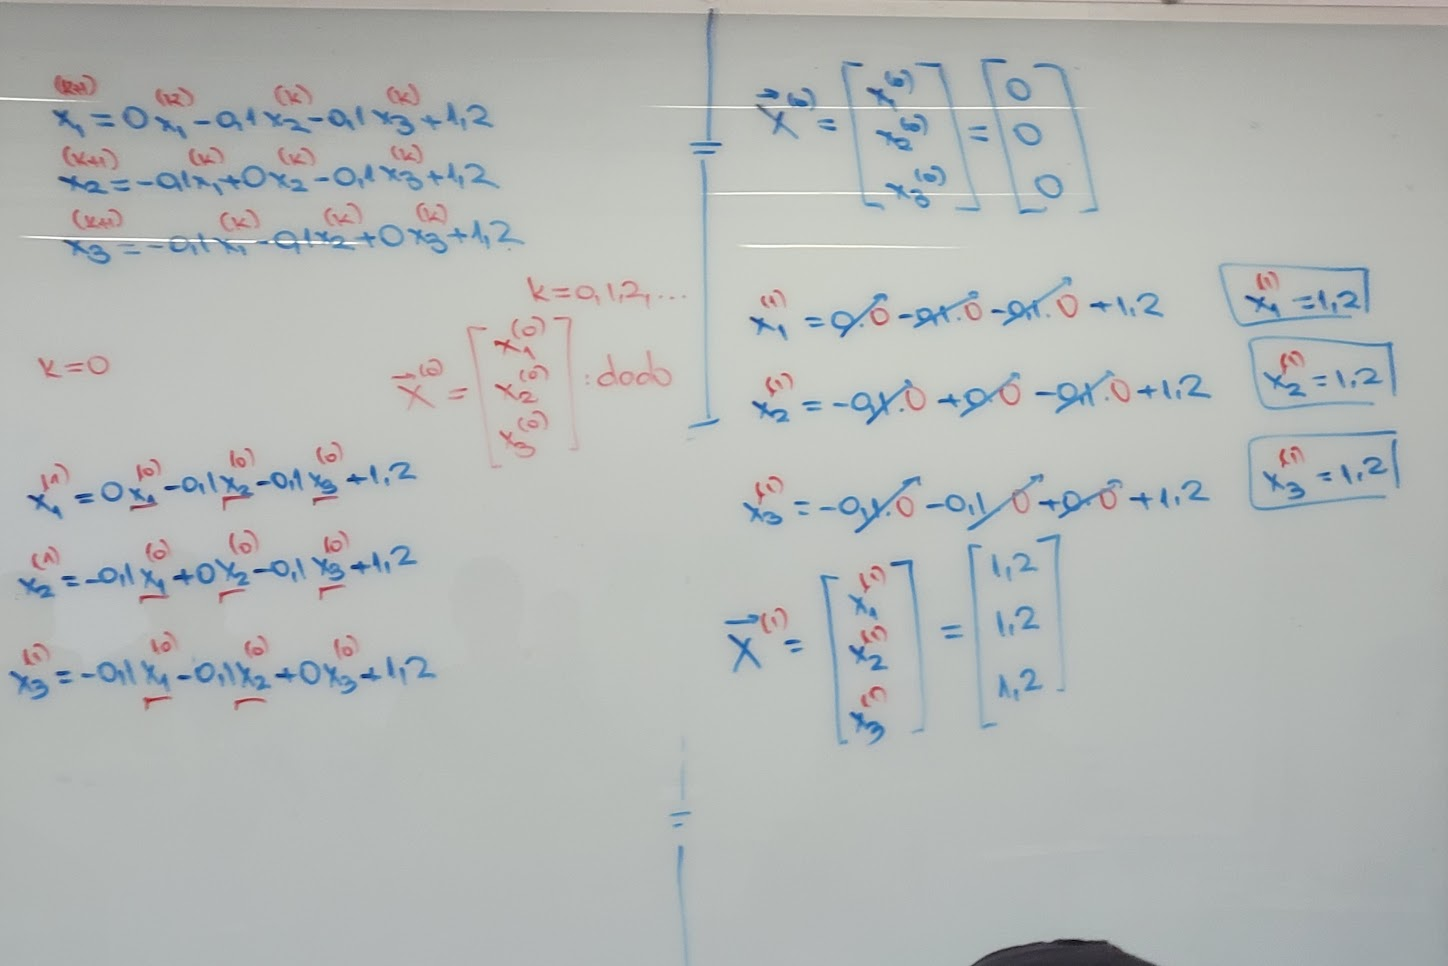 x₁⁽ᵏ⁺¹⁾ = 0x₁⁽ᵏ⁾ - 0,1x₂⁽ᵏ⁾ - 0,1x₃⁽ᵏ⁾ + 1,2
x₂⁽ᵏ⁺¹⁾ = -0,1x₁⁽ᵏ⁾ + 0x₂⁽ᵏ⁾ - 0,1x₃⁽ᵏ⁾ + 1,2
x₃⁽ᵏ⁺¹⁾ = -0,1x₁⁽ᵏ⁾ - 0,1x₂⁽ᵏ⁾ + 0x₃⁽ᵏ⁾ + 1,2
k=0,1,2,...
k=0
x⃗⁽⁰⁾ = [x₁⁽⁰⁾ x₂⁽⁰⁾ x₃⁽⁰⁾] : dado
x₁⁽¹⁾ = 0x₁⁽⁰⁾ - 0,1x₂⁽⁰⁾ - 0,1x₃⁽⁰⁾ + 1,2
x₂⁽¹⁾ = -0,1x₁⁽⁰⁾ + 0x₂⁽⁰⁾ - 0,1x₃⁽⁰⁾ + 1,2
x₃⁽¹⁾ = -0,1x₁⁽⁰⁾ - 0,1x₂⁽⁰⁾ + 0x₃⁽⁰⁾ + 1,2
x⃗⁽⁰⁾ = [x₁⁽⁰⁾ x₂⁽⁰⁾ x₃⁽⁰⁾] = [0 0 0]
x₁⁽¹⁾ = 0.0 - 0,1.0 - 0,1.0 + 1,2 x₁⁽¹⁾ = 1,2
x₂⁽¹⁾ = -0,1.0 + 0.0 - 0,1.0 + 1,2 x₂⁽¹⁾ = 1,2
x₃⁽¹⁾ = -0,1.0 - 0,1 0 + 0.0 + 1,2 x₃⁽¹⁾ = 1,2
x⃗⁽¹⁾ = [x₁⁽¹⁾ x₂⁽¹⁾ x₃⁽¹⁾] = [1,2 1,2 1,2]